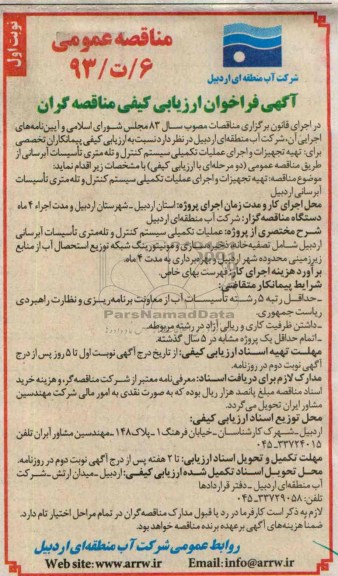 نوبت اول
مناقصه عمومی
۶/ت/۹۳
شرکت آب منطقه ای اردبیل
آگهی فراخوان ارزیابی کیفی مناقصه گران
در اجرای قانون برگزاری مناقصات مصوب سال ۸۳ مجلس شورای اسلامی و آیین‌نامه‌های
اجرایی آن، شرکت آب منطقه‌ای اردبیل در نظر دارد نسبت به ارزیابی کیفی پیمانکاران تخصصی
برای: تهیه تجهیزات و اجرای عملیات تکمیلی سیستم کنترل و تله متری تأسیسات آبرسانی از
طریق مناقصه عمومی (دو مرحله‌ای با ارزیابی کیفی) با مشخصات زیر اقدام نماید:
موضوع مناقصه: تهیه تجهیزات و اجرای عملیات تکمیلی سیستم کنترل و تله متری تأسیسات
آبرسانی اردبیل
محل اجرای کار و مدت زمان اجرای پروژه: استان اردبیل - شهرستان اردبیل و مدت اجراء ۴ ماه
دستگاه مناقصه گزار: شرکت آب منطقه‌ای اردبیل
شرح مختصری از پروژه: عملیات تکمیلی سیستم کنترل و تله متری تأسیسات آبرسانی
اردبیل شامل تصفیه‌خانه، ذخیره سازی و مونیتورینگ شبکه توزیع استحصال آب از منابع
زیرزمینی محدوده شهر اردبیل و بهره‌برداری به مدت ۴ ماه.
برآورد هزینه اجرای کار: فهرست بهای خاص.
شرایط پیمانکار متقاضی:
-حداقل رتبه ۵ رشته تأسیسات آب از معاونت برنامه‌ریزی و نظارت راهبردی
ریاست جمهوری.
-داشتن ظرفیت کاری و ریالی آزاد در رشته مربوطه.
-اتمام حداقل یک پروژه مشابه در ۵ سال گذشته.
مهلت تهیه اسناد ارزیابی کیفی: از تاریخ درج آگهی نوبت اول تا ۵ روز پس از درج
آگهی نوبت دوم در روزنامه.
مدارک لازم برای دریافت اسناد: معرفی‌نامه معتبر از شرکت مناقصه‌گر، و هزینه خرید
اسناد مناقصه مبلغ پانصد هزار ریال بوده که به صورت نقدی به امور مالی شرکت مهندسین
مشاور ایران تحویل می‌گردد.
محل توزیع اسناد ارزیابی کیفی:
اردبیل - شهرک کارشناسان - خیابان فرهنگ ۱ - پلاک ۱۴۸ - مهندسین مشاور آبران تلفن
۰۴۵-۳۳۷۲۴۰۱۵
مهلت تکمیل و تحویل اسناد ارزیابی: تا ۲ هفته پس از درج آگهی نوبت دوم در روزنامه.
محل تحویل اسناد تکمیل شده ارزیابی کیفی: اردبیل - میدان ارتش - شرکت
آب منطقه‌ای اردبیل - دفتر قراردادها
تلفن: ۳۳۷۲۹۰۵۸-۰۴۵
لازم به ذکر است کارفرما در رد یا قبول مدارک مناقصه‌گران در تمام مراحل اختیار تام دارد.
ضمنا هزینه‌های آگهی برعهده برنده مناقصه خواهد بود.
روابط عمومی شرکت آب منطقه‌ای اردبیل
Web site: www.arrw.ir Email:info@arrw.ir
ParsNamadData